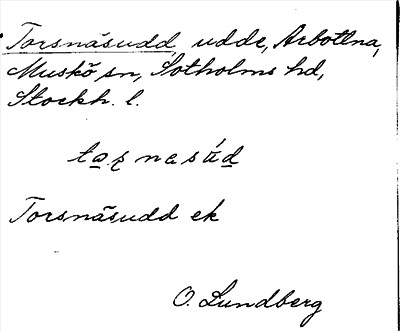 Torsnäsudd, udde, Arbottna,
Muskö sn, Sotholms hd,
Stockh. l.
tọrnasúd
Torsnäsudd ek
O. Lundberg